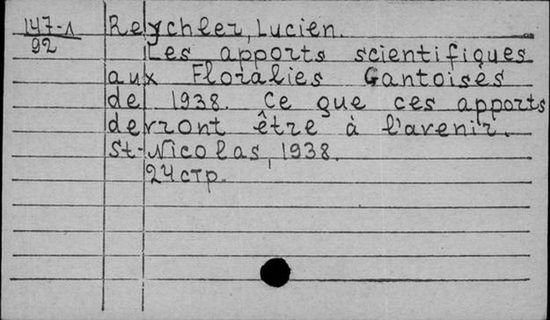 147-1
92
Reychler, Lucien.
Les apports scientifiques
aux Floralies Gantoises
de 1938. Ce que ces apports
devront être à l'avenir.
St-Nicolas, 1938.
24 стр.